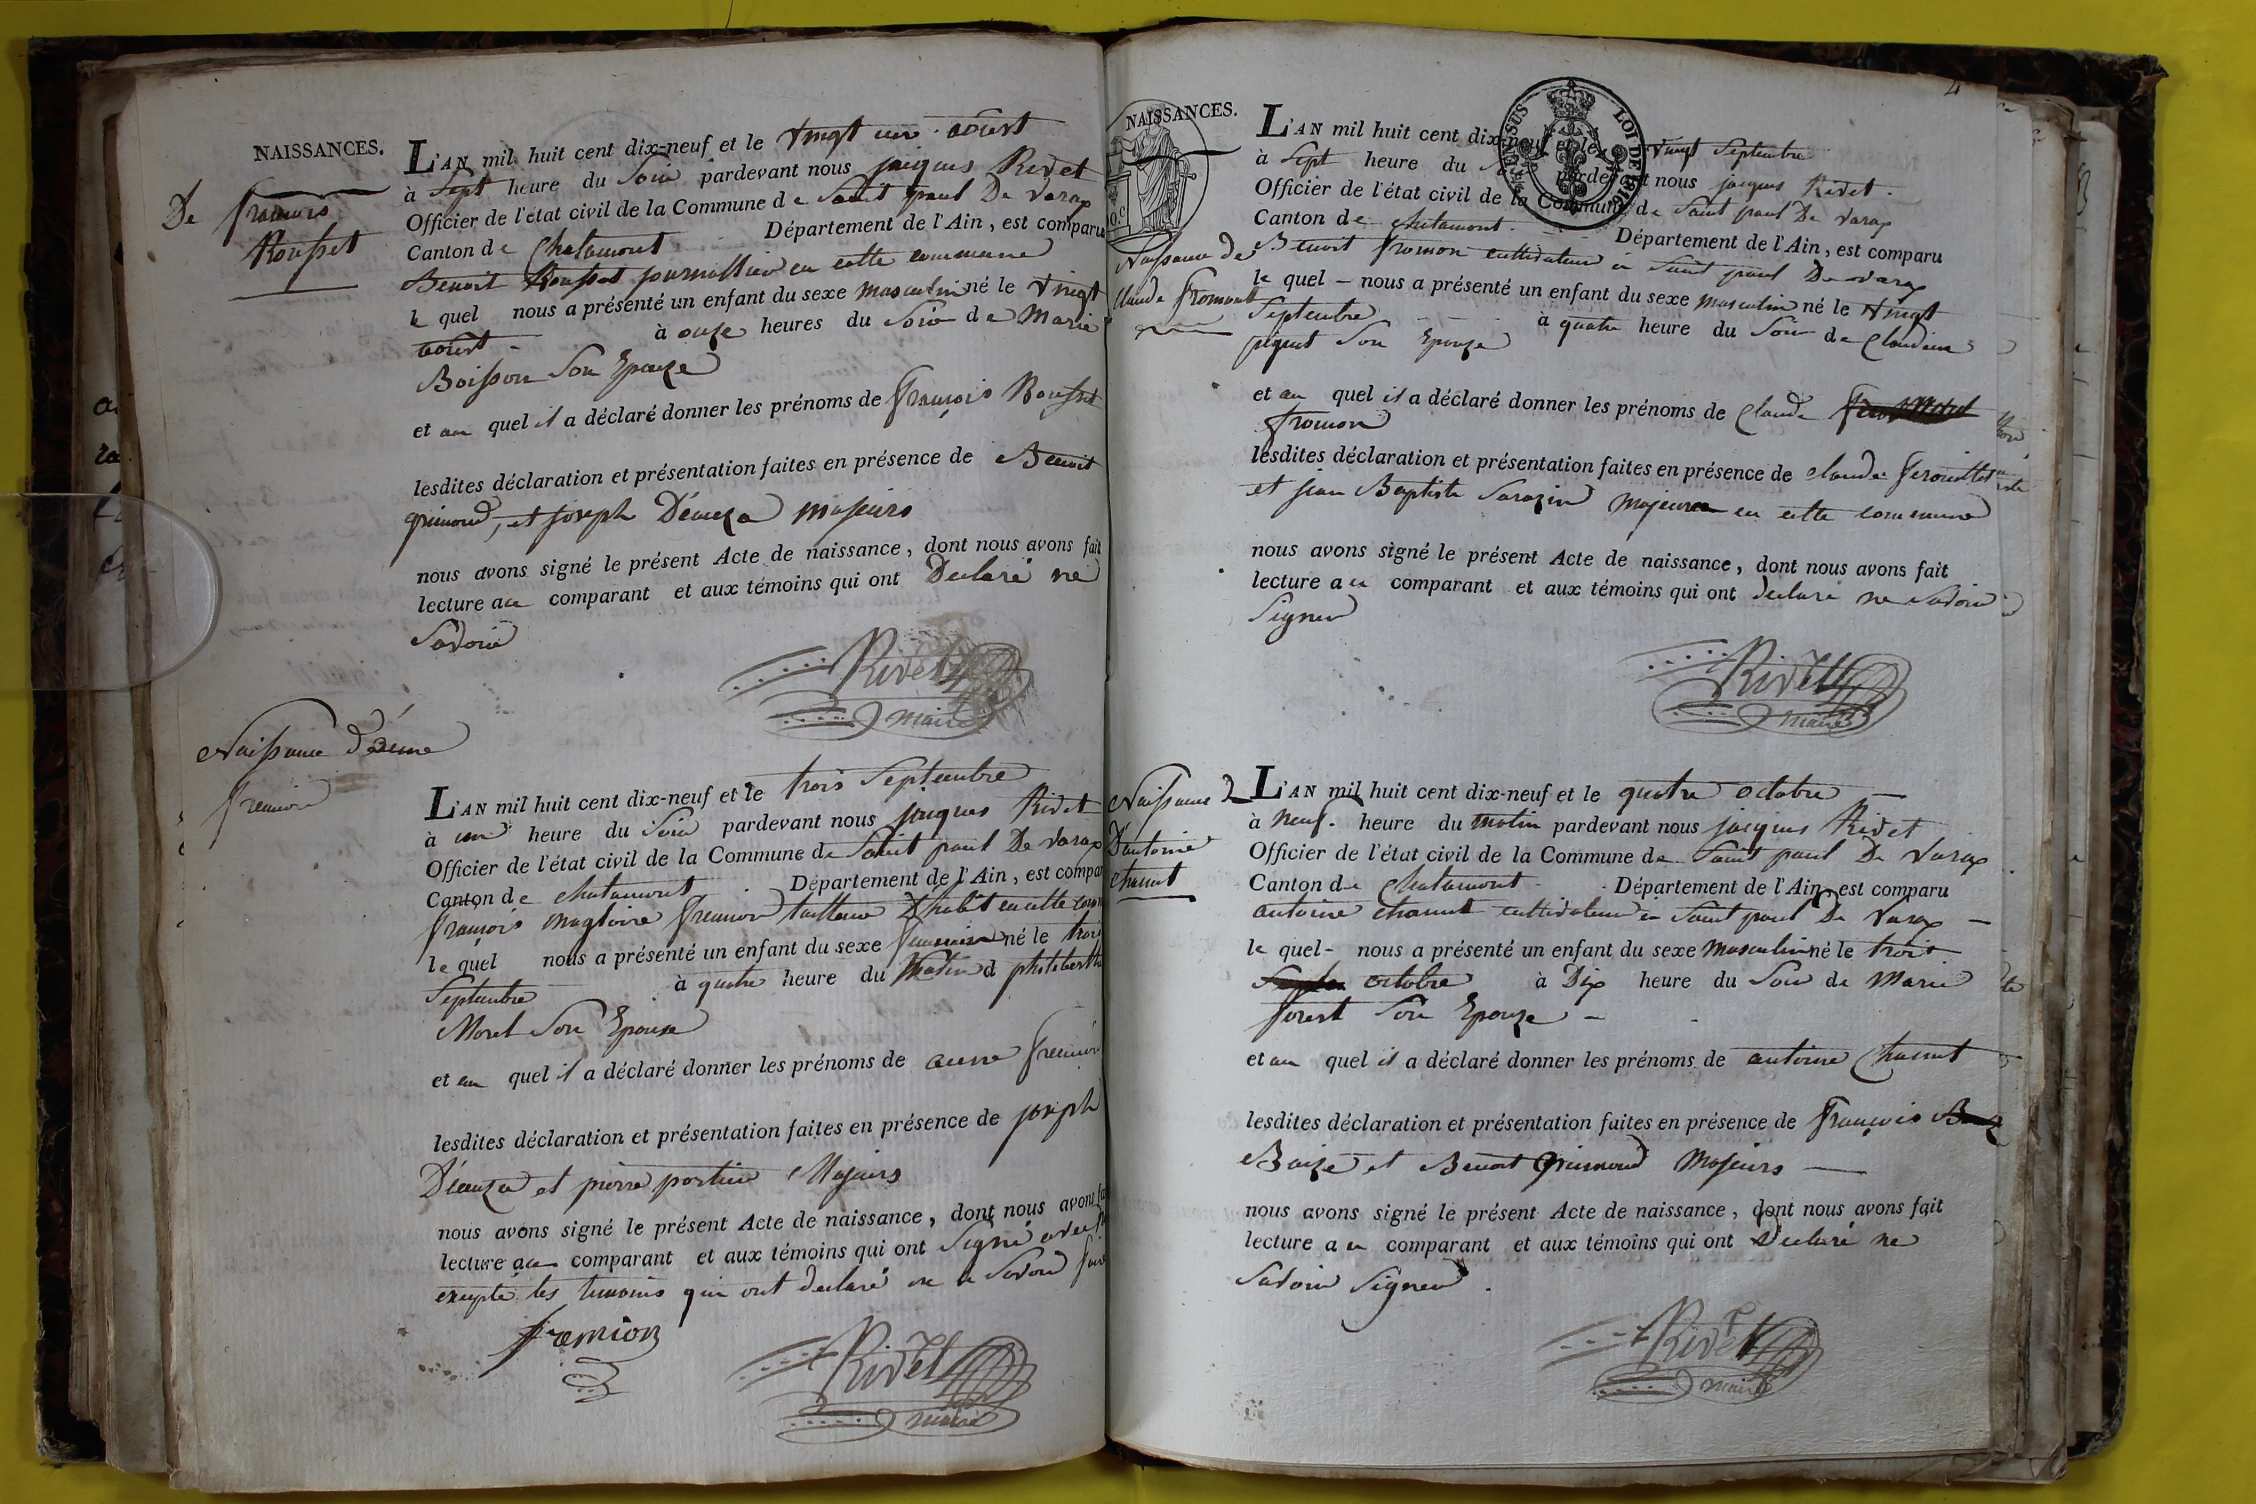 NAISSANCES.
De françois
Rousset
L'AN mil huit cent dix-neuf et le vingt un aoust
à Sept heure du Soir pardevant nous jacques Rivet
Officier de l'état civil de la Commune de Saint paul De Varax
Canton de Chatamont Département de l'Ain, est comparu
Benoit Rousset journallier en cette commune
le quel nous a présenté un enfant du sexe masculin né le vingt
aoust à onze heures du Soir de Marie
Boisson Son Epouze
et au quel il a déclaré donner les prénoms de françois Rousset
lesdites déclaration et présentation faites en présence de Benoit
grimond, et joseph majeurs
nous avons signé le présent Acte de naissance, dont nous avons fait
lecture au comparant et aux témoins qui ont Declaré ne
Savoir
Rivet
maire
Naissance d'anne
fremion
L'AN mil huit cent dix-neuf et le trois Septembre
à une heure du Soir pardevant nous jacques Rivet
Officier de l'état civil de la Commune de Saint paul De Varax
Canton de chatamont Département de l'Ain, est compar
françois magloire fremion tailleur D'habit en cette com
le quel nous a présenté un enfant du sexe feminin né le trois
Septembre à quatre heure du Matin d philiberthe
Morel Son Epouse
et au quel il a déclaré donner les prénoms de anne fremion
lesdites déclaration et présentation faites en présence de joseph
et pierre portier Majeurs
nous avons signé le présent Acte de naissance, dont nous avons fa
lecture au comparant et aux témoins qui ont Signé avec
excepté les temoins qui ont declaré ne le Savoir faire
fremion
Rivet
maire
4
NAISSANCES.
Naissance de
Claude fromont
L'AN mil huit cent dix-neuf et le vingt Septembre
à Sept heure du pardevant nous jacques Rivet
Officier de l'état civil de la Commune de Saint paul De Varax
Canton de chatamont Département de l'Ain, est comparu
Benoit fromon cultivateur à Saint paul De Varax
le quel nous a présenté un enfant du sexe masculin né le vingt
Septembre à quatre heure du Soir de Claudine
piquet Son Epouze
et au quel il a déclaré donner les prénoms de Claude
fromon
lesdites déclaration et présentation faites en présence de claude ferouillet
et jean Baptiste Sarazin majeurs en cette commune
nous avons signé le présent Acte de naissance, dont nous avons fait
lecture au comparant et aux témoins qui ont declaré ne Savoir
Signer
Rivet
maire
Naissance
D'antoine
chanut
L'AN mil huit cent dix-neuf et le quatre octobre
à neuf heure du matin pardevant nous jacques Rivet
Officier de l'état civil de la Commune de Saint paul De Varax
Canton de Chatamont Département de l'Ain, est comparu
antoine chanut cultivateur à Saint paul De Varax
le quel nous a présenté un enfant du sexe masculin né le trois
octobre à Dix heure du Soir de Marie
forest Son Epouze
et au quel il a déclaré donner les prénoms de antoine Chanut
lesdites déclaration et présentation faites en présence de françois
Baize et Benoit Grimond Majeurs
nous avons signé le présent Acte de naissance, dont nous avons fait
lecture au comparant et aux témoins qui ont Declaré ne
Savoir Signer
Rivet
maire
LOI DE 1816